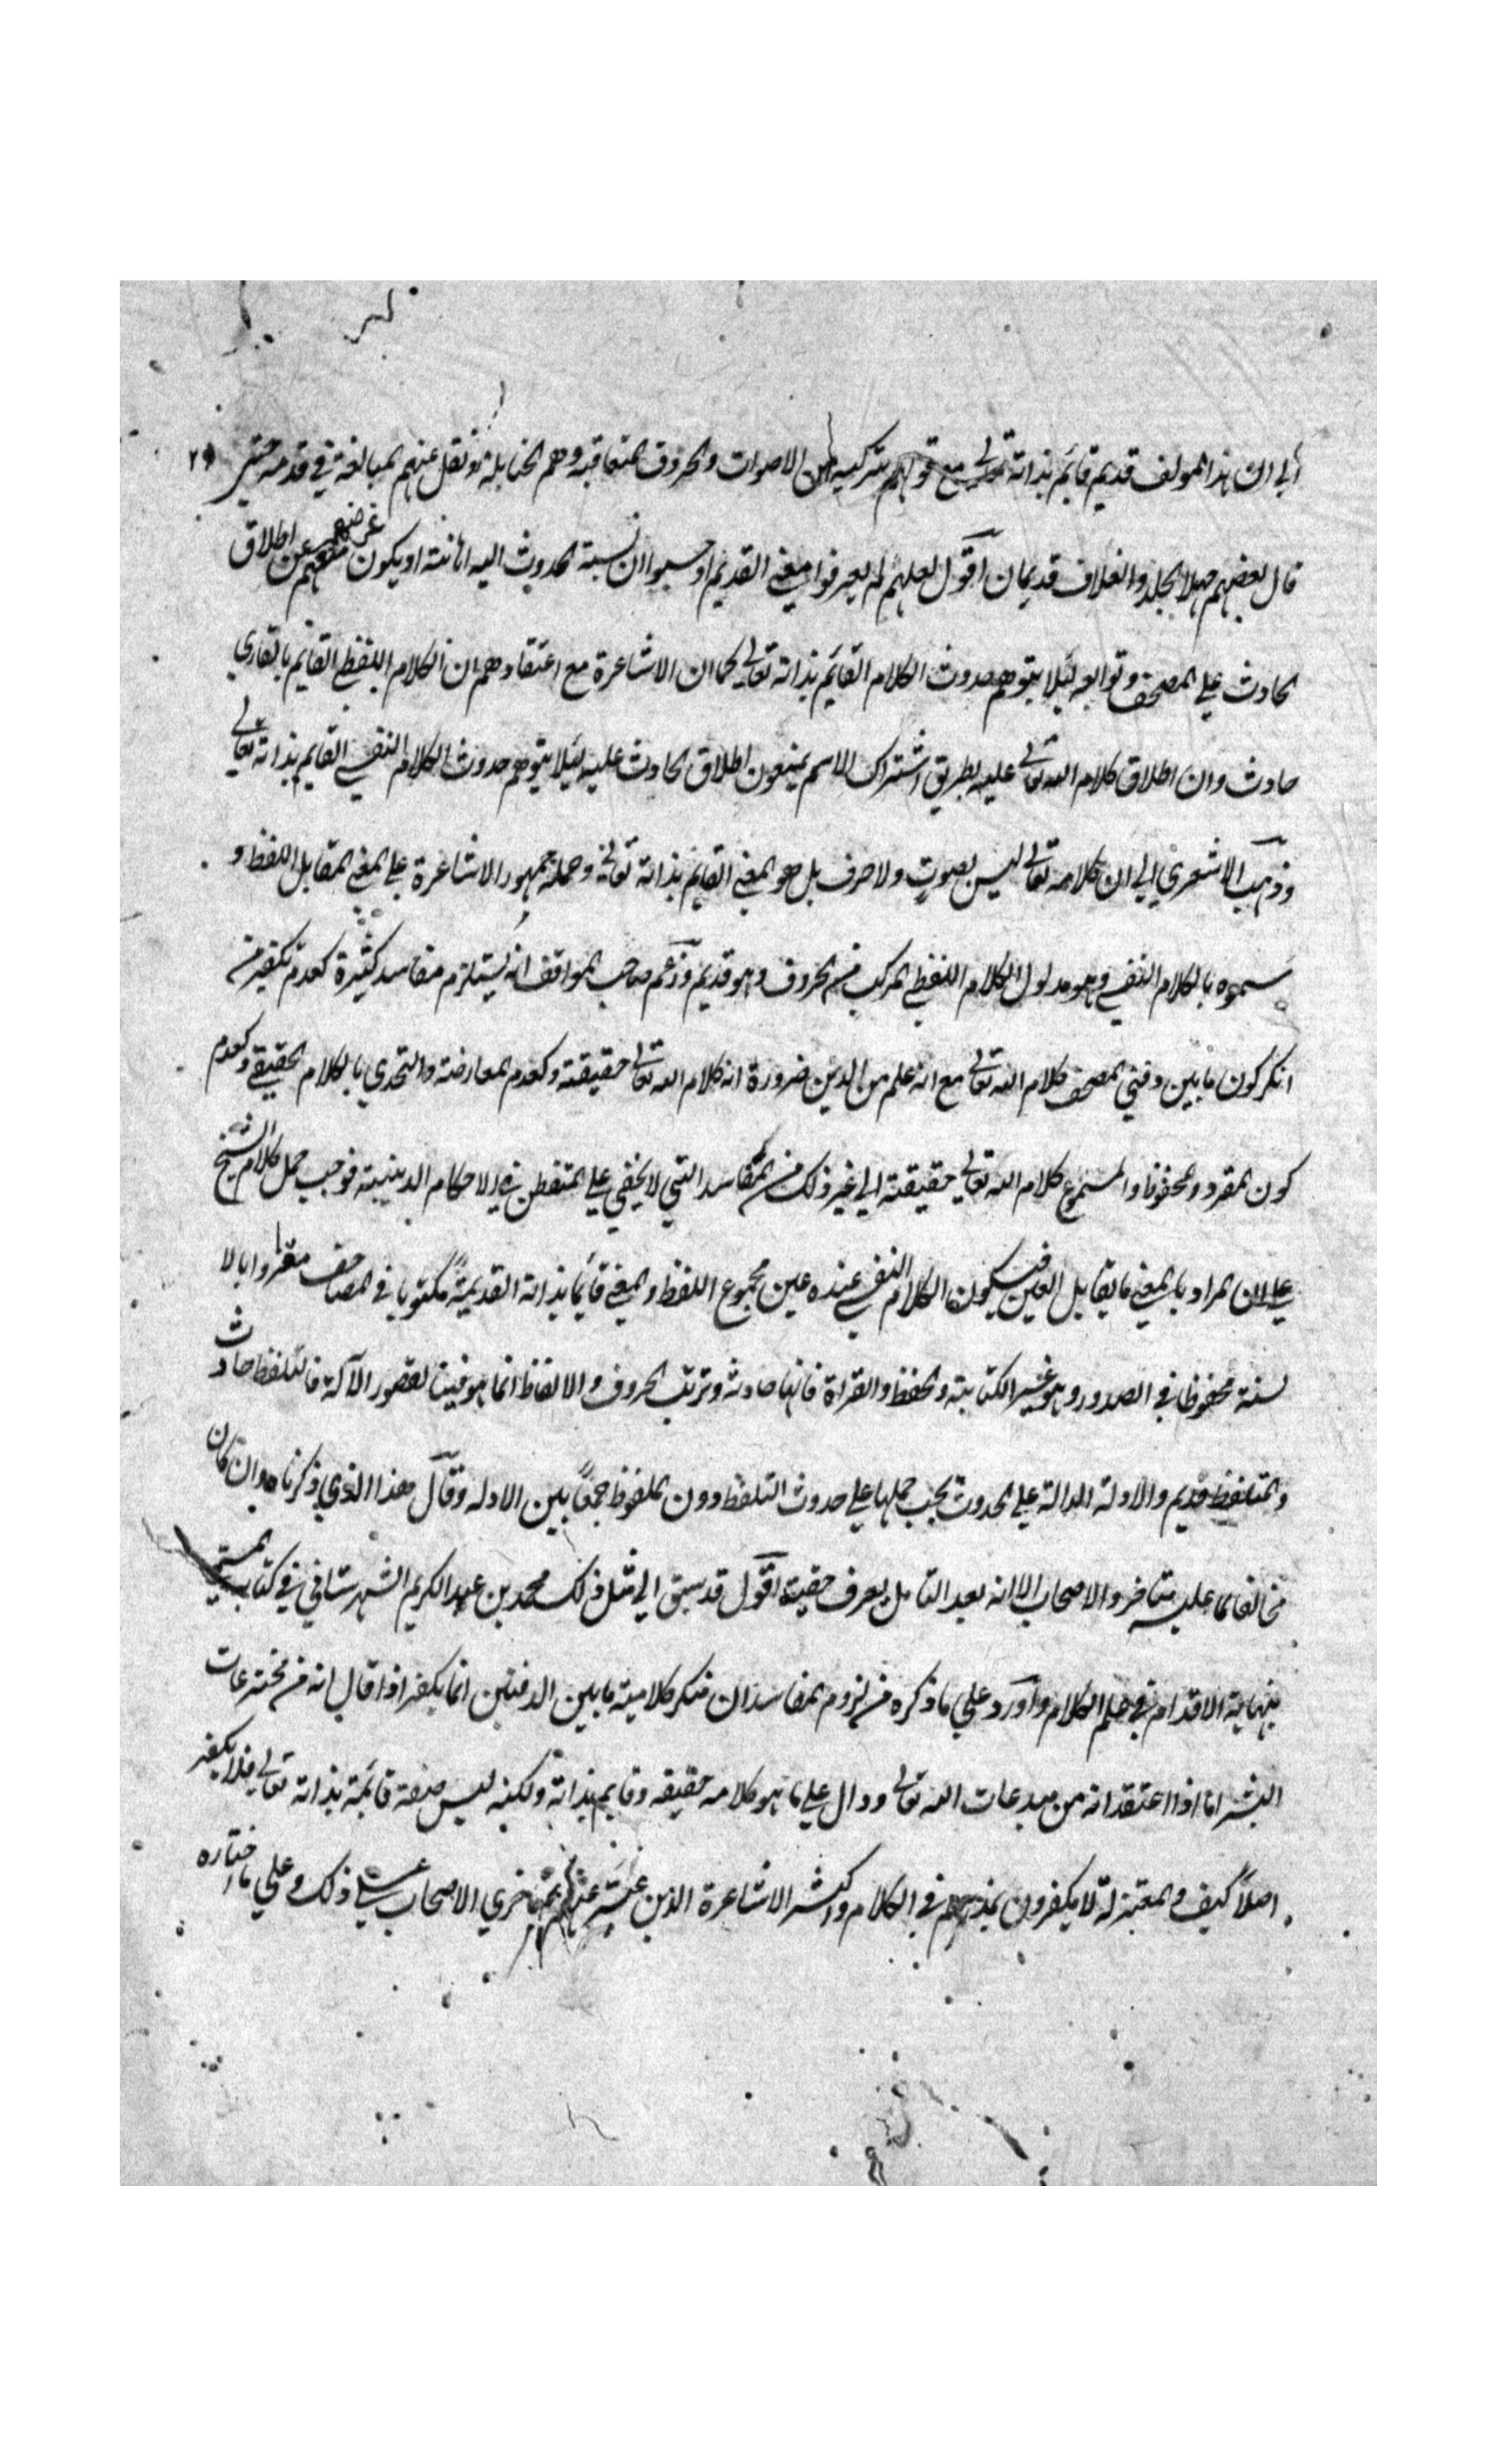 الي ان هذا المولف قديم قائم بذاته تعالى مع قولهم بتركيبه من الاصوات والحروف المتعاقبة وهم الحنابلة ونقل عنهم المبالغة في قدمه حتى ٢٩
قال بعضهم جهلا الجلد والغلاف قديمان اقول لعلهم لم يعرفوا معنى القديم او حسبوا ان نسبة الحدوث اليه اهانته او يكون غرضهم منعهم عن اطلاق
الحادث على المصحف وتوابعه لئلا يتوهم حدوث الكلام القائم بذاته تعالى كما ان الاشاعرة مع اعتقادهم ان الكلام اللفظي القايم بالقاري
حادث وان اطلاق كلام الله تعالى عليه بطريق اشتراك الاسم يمنعون اطلاق الحادث عليه لئلا يتوهم حدوث الكلام النفسي القايم بذاته تعالى
وذهب الاشعري الي ان كلامه تعالى ليس بصوت ولا حرف بل هو المعنى القايم بذاته تعالى وحمله جمهور الاشاعرة على المعنى المقابل اللفظ و
سموه بالكلام النفسي وهو مدلول الكلام اللفظي المركب من الحروف وهو قديم وزعم صاحب المواقف انه يستلزم مفاسد كثيرة كعدم تكفير من
انكر كون ما بين دفتي المصحف كلام الله تعالى مع انه علم من الدين ضرورة انه كلام الله تعالى حقيقة وكعدم المعارضة والتحدي بالكلام الحقيقي وكعدم
كون المقرو والمحفوظ والمسموع كلام الله تعالى حقيقته الي غير ذلك من المفاسد التي لا يخفي علي المتفطن في الاحكام الدينية فوجب حمل كلام الشيخ
علي ان المراد بالمعنى ما يقابل العين فيكون الكلام النفسي عنده عين مجموع اللفظ والمعنى قائما بذاته القديمة مكتوبا في المصاحف مقروا بالا
لسنة محفوظا في الصدور وهو غير الكتابة والحفظ والقراة فانها حادثة وترتب الحروف والالفاظ انما هو فينا لقصور الآلة فالتلفظ حادث
والمتلفظ قديم والادلة الدالة علي الحدوث يجب حملها علي حدوث التلفظ دون الملفوظ جمعا بين الادله وقال هذا الذي ذكرناه وان كان
مخالفا لما عليه متاخروا الاصحاب الا انه بعد التامل يعرف حقيته اقول قد سبق الي مثل ذلك محمد بن عبد الكريم الشهرستاني في كتاب المسمى
بنهاية الاقدام في علم الكلام واورد علي ما ذكره من لزوم المفاسد ان منكر كلامية ما بين الدفتين انما يكفر اذا قال انه من مخترعات
البشر اما اذا اعتقد انه من مبدعات الله تعالى ودال علي ما هو كلامه حقيقه وقايم بذاته ولكنه ليس صفة قائمة بذاته تعالى فلا يكفر
اصلا كيف والمعتزلة لا يكفرون بمذهبهم في الكلام واكثر الاشاعرة الذين عبر عنهم بمتاخري الاصحاب علي ذلك وعلي ما اختاره